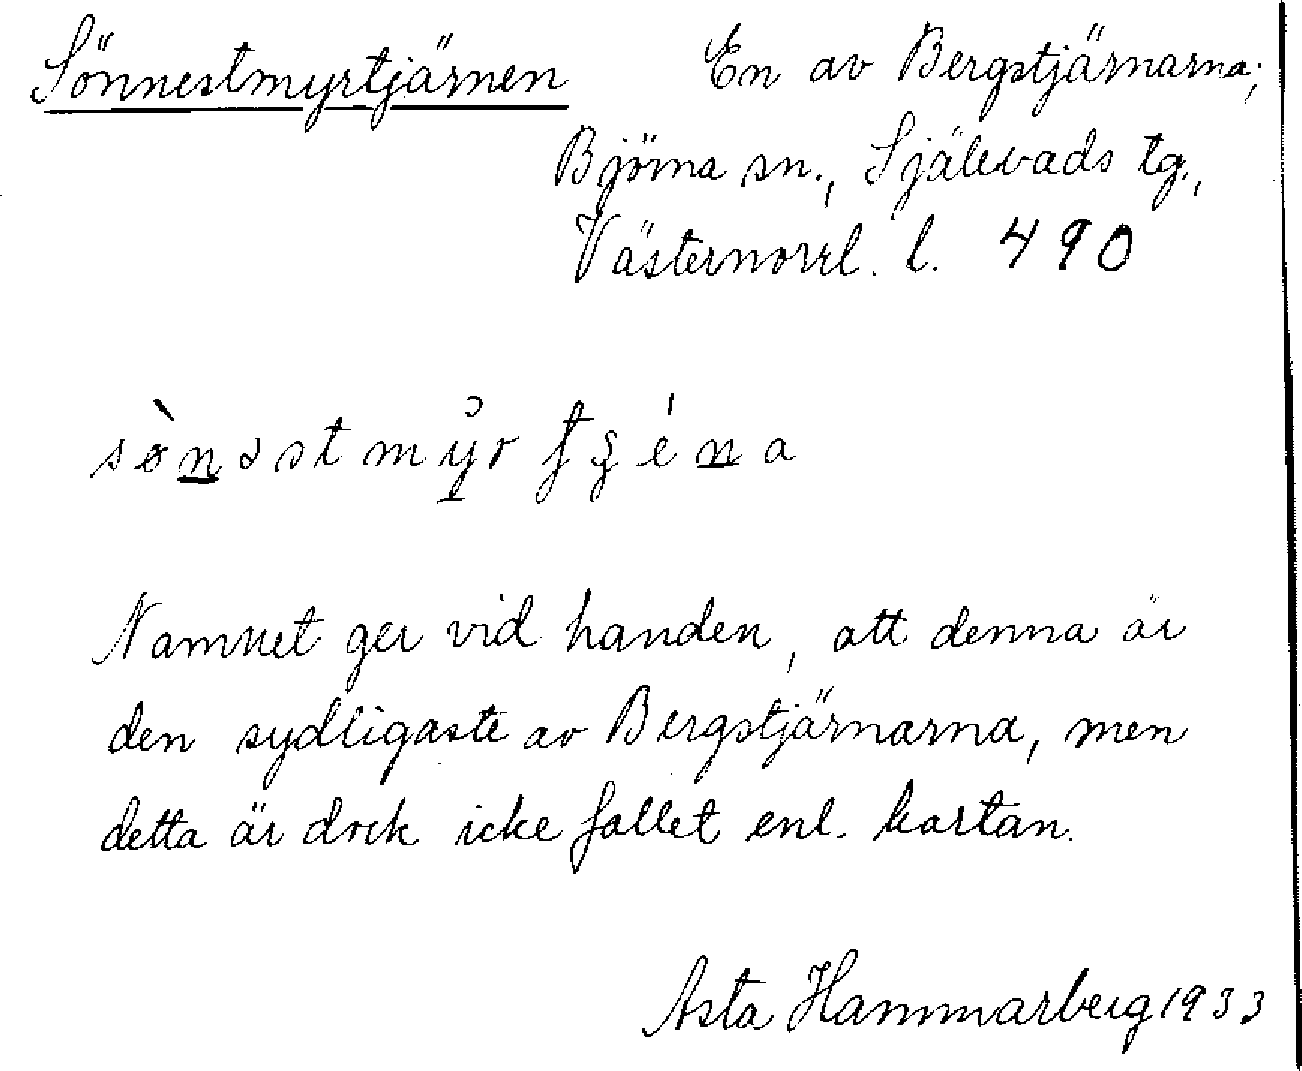 Sönnestmyrtjärnen
En av Bergstjärnarna;
Björna sn., Själevads tg.,
Västernorrl. l. 490
Namnet ger vid handen, att denna är
den sydligaste av Bergstjärnarna, men
detta är dock icke fallet enl. kartan.
Asta Hammarberg 1933